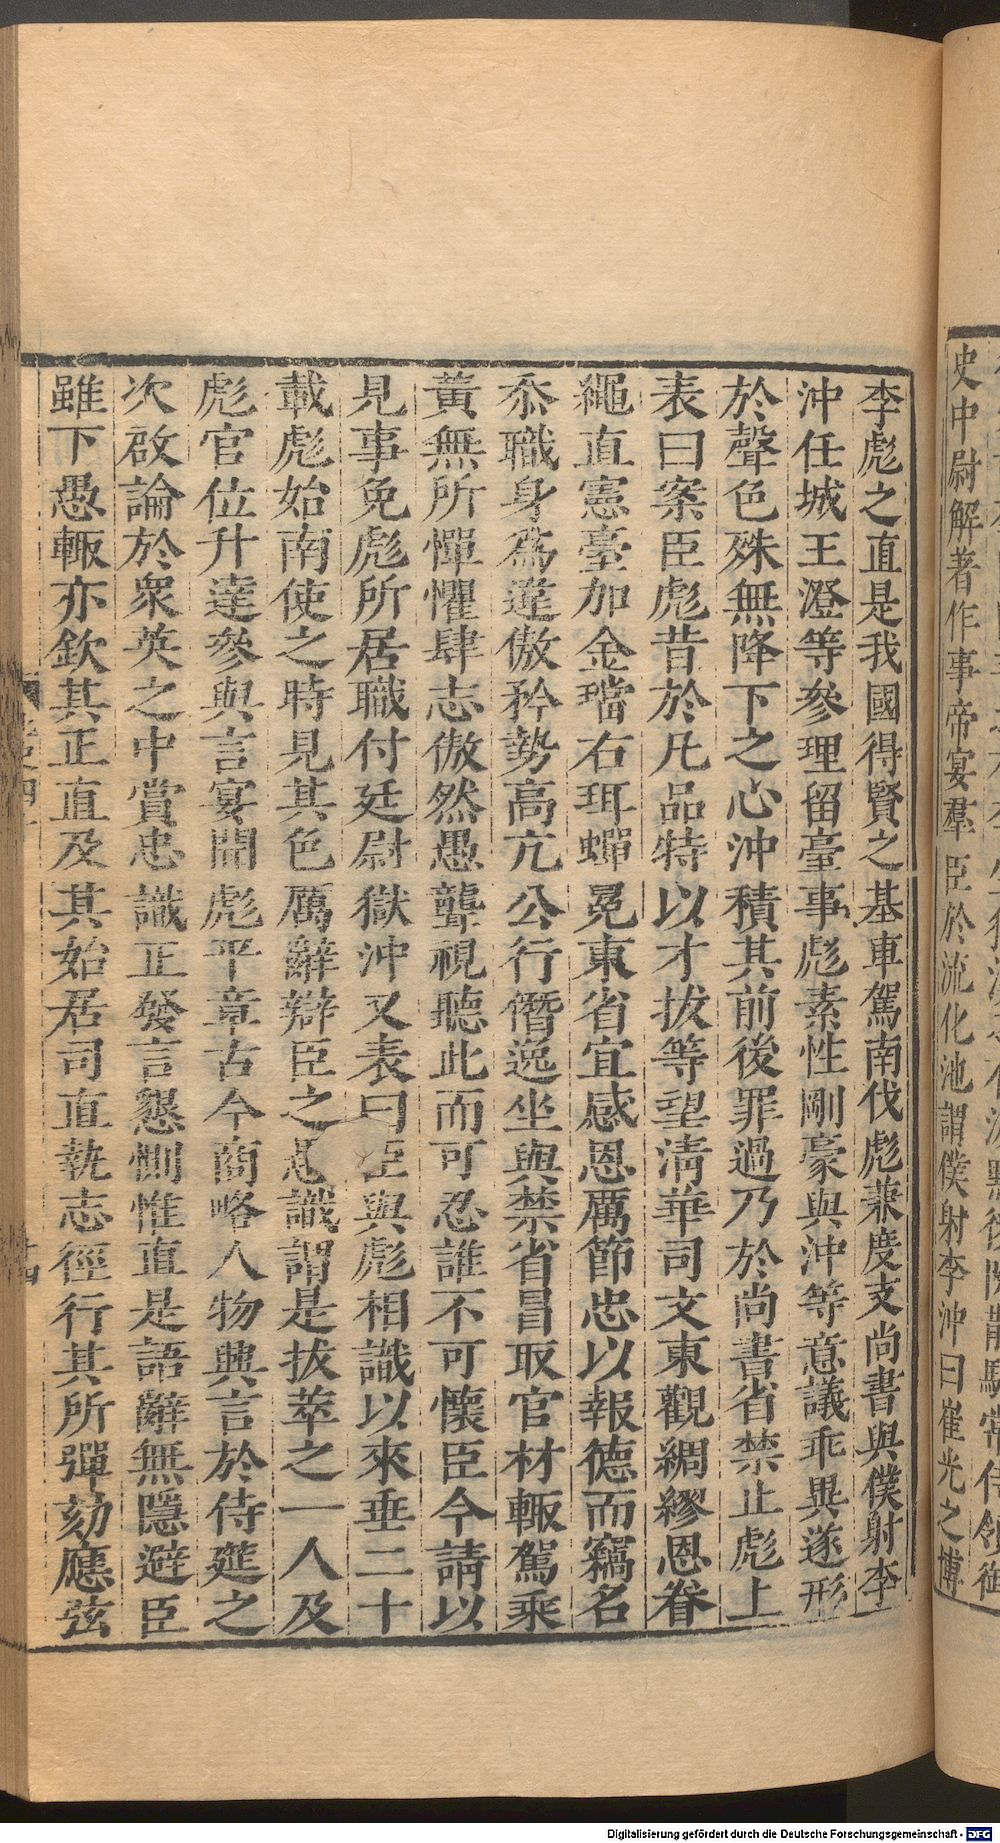 史中尉解著作事帝宴羣臣於流化池謂僕射李沖曰崔光之博
李彪之直是我國得賢之基車駕南伐彪兼度支尚書與僕射李
沖任城王澄等參理留臺事彪素性剛豪與沖等意議乖異遂形
於聲色殊無降下之心沖積其前後罪過乃於尚書省禁止彪上
表曰案臣彪昔於凡品特以才拔等望清華司文東觀綢繆恩眷
繩直憲臺加金璫右珥蟬冕東省宜感恩厲節忠以報德而竊名
忝職身為違傲矜勢高亢公行僭逸坐與禁省冒取官材輙駕乘
黃無所憚懼肆志傲然愚聾視聽此而可忍誰不可懷臣今請以
見事免彪所居職付廷尉獄沖又表曰臣與彪相識以來垂二十
載彪始南使之時見其色厲辭辯臣之愚識謂是拔萃之一人及
彪官位升達參與言宴聞彪平章古今商略人物興言於侍筵之
次啟論於眾英之中賞忠識正發言懇惻惟直是語辭無隱避臣
雖下愚輙亦欽其正直及其始居司直執志徑行其所彈劾應弦
Digitalisierung gefördert durch die Deutsche Forschungsgemeinschaft - DFG